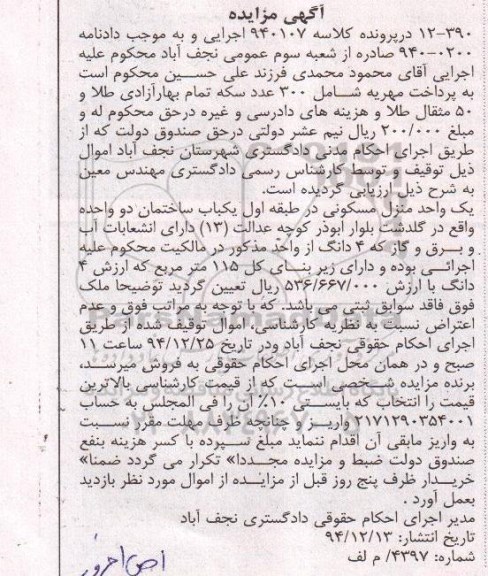 آگهی مزایده
۱۲-۳۹۰ درپرونده کلاسه ۹۴۰۱۰۷ اجرایی و به موجب دادنامه
۹۴۰-۰۲۰۰ صادره از شعبه سوم عمومی نجف آباد محکوم علیه
اجرایی آقای محمود محمدی فرزند علی حسین محکوم است
به پرداخت مهریه شامل ۳۰۰ عدد سکه تمام بهارآزادی طلا و
۵۰ مثقال طلا و هزینه های دادرسی و غیره درحق محکوم له و
مبلغ ۲۰۰/۰۰۰ ریال نیم عشر دولتی درحق صندوق دولت که از
طریق اجرای احکام مدنی دادگستری شهرستان نجف آباد اموال
ذیل توقیف و توسط کارشناس رسمی دادگستری مهندس معین
به شرح ذیل ارزیابی گردیده است.
یک واحد منزل مسکونی در طبقه اول یکباب ساختمان دو واحده
واقع در گلدشت بلوار ابوذر کوچه عدالت (۱۳) دارای انشعابات آب
و برق و گاز که ۴ دانگ از واحد مذکور در مالکیت محکوم علیه
اجرائی بوده و دارای زیر بنای کل ۱۱۵ متر مربع که ارزش ۴
دانگ با ارزش ۵۳۶/۶۶۷/۰۰۰ ریال تعیین گردید توضیحا ملک
فوق فاقد سوابق ثبتی می باشد. که با توجه به مراتب فوق و عدم
اعتراض نسبت به نظریه کارشناسی، اموال توقیف شده از طریق
اجرای احکام حقوقی نجف آباد ودر تاریخ ۹۴/۱۲/۲۵ ساعت ۱۱
صبح و در همان محل اجرای احکام حقوقی به فروش میرسد،
برنده مزایده شخصی است که از قیمت کارشناسی بالاترین
قیمت را انتخاب که بایستی ۱۰٪ آن را فی المجلس به حساب
۲۱۷۱۲۹۰۳۵۴۰۰۱ واریز و چنانچه ظرف مهلت مقرر نسبت
به واریز مابقی آن اقدام ننماید مبلغ سپرده با کسر هزینه بنفع
صندوق دولت ضبط و مزایده مجددا» تکرار می گردد ضمنا»
خریدار ظرف پنج روز قبل از مزایده از اموال مورد نظر بازدید
بعمل آورد .
مدیر اجرای احکام حقوقی دادگستری نجف آباد
تاریخ انتشار: ۹۴/۱۲/۱۳
شماره: ۴۳۹۷/ م لف